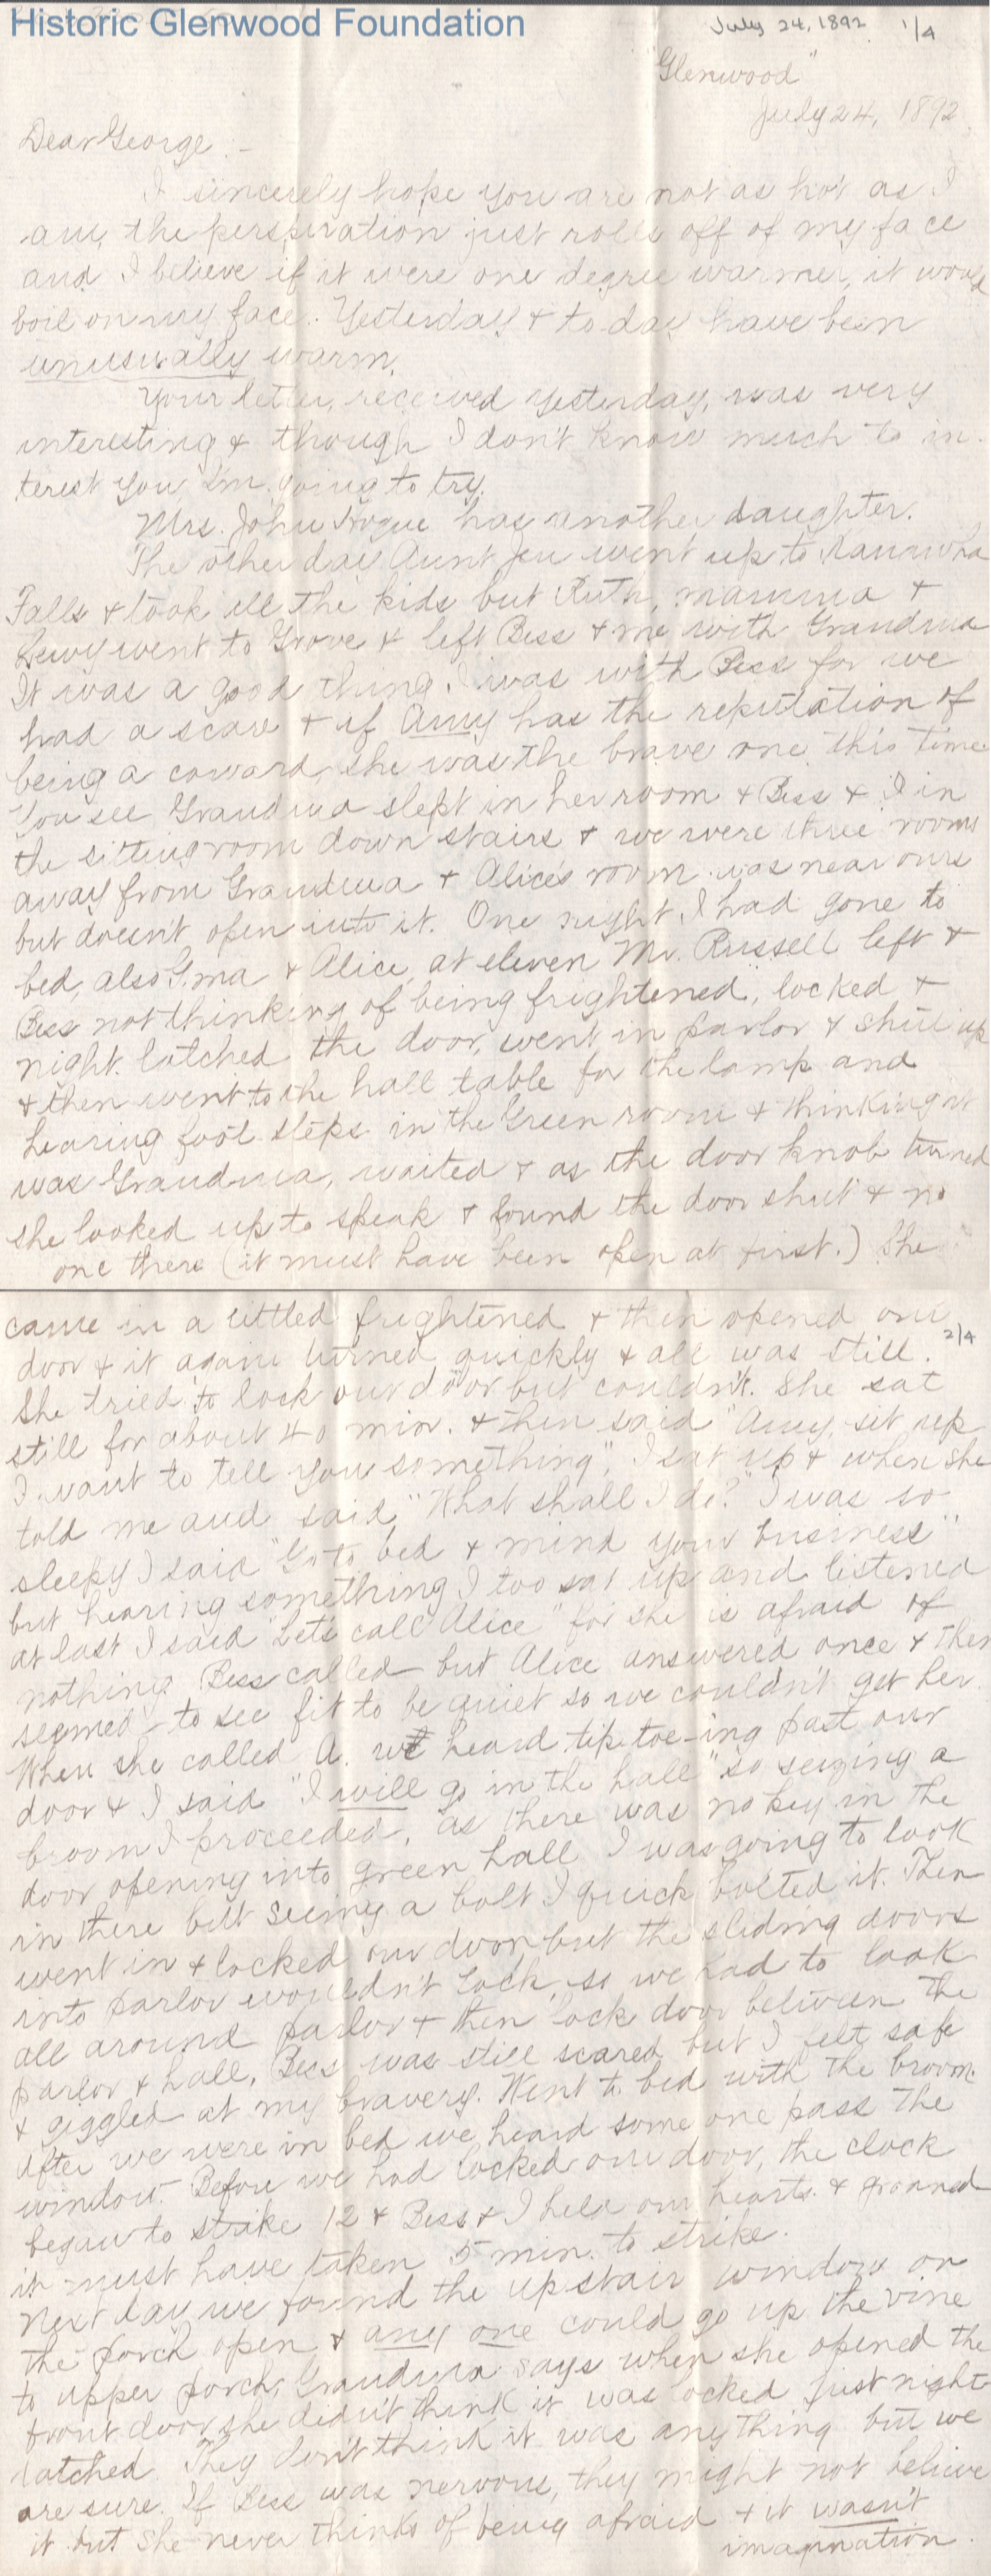 Historic Glenwood Foundation
July 24, 1892. 1/4
"Glenwood"
July 24, 1892.
Dear George :-
I sincerely hope you are not as hot as I
am, the perspiration just rolls off of my face
and I believe if it were one degree warmer, it would
boil on my face. Yesterday & to day have been
unusually warm.
Your letter, received yesterday, was very
interesting & though I don't know much to in-
terest you I'm going to try.
Mrs. John Hogue has another daughter.
The other day Aunt Jen went up to Kanawha
Falls & took all the kids but Ruth, mamma &
went to Grove & left Bess & me with Grandma
It was a good thing I was with Bess for we
had a scare & if Amy has the reputation of
being a coward, she was the brave one this time.
You see Grandma slept in her room & Bess & I in
the sitting room down stairs & we were three rooms
away from Grandma & Alice's room was near ours
but doesn't open into it. One night I had gone to
bed, also G.ma & Alice, at eleven Mr. Russell left &
Bess not thinking of being frightened, locked &
night latched the door, went in parlor & shut up
& then went to the hall table for the lamp and
hearing foot steps in the Green room & thinking it
was Grandma, waited & as the door knob turned
she looked up to speak & found the door shut & no
one there (it must have been open at first.) She
came in a littled frightened & then opened our
2/4
door & it again turned quickly & all was still.
She tried to lock our door but couldn't. She sat
still for about 40 min. & then said "Amy, sit up
I want to tell you something", I sat up & when she
told me and said, "What shall I do?" I was so
sleepy I said "Go to bed & mind your business"
but hearing something I too sat up and listened
at last I said "Let's call Alice" for she is afraid of
nothing. Bess called but Alice answered once & then
seemed to see fit to be quiet so we couldn't get her.
When she called A. we heard tip-toe-ing past our
door & I said "I will go in the hall" so seizing a
broom I proceeded, as there was no key in the
door opening into green hall I was going to look
in there but seeing a bolt I quick bolted it. Then
went in & locked our door but the sliding doors
into parlor wouldn't lock, so we had to look
all around parlor & then lock door between the
parlor & hall, Bess was still scared but I felt safe
& giggled at my bravery. Went to bed with the broom.
After we were in bed we heard some one pass the
window. Before we had locked our door, the clock
began to strike 12 & Bess & I held our hearts & groaned
it must have taken 5 min. to strike.
Next day we found the upstair window on
the porch open & any one could go up the vine
to upper porch, Grandma says when she opened the
front door she didn't think it was locked just night
latched. They don't think it was anything but we
are sure. If Bess was nervous, they might not believe
it but she never thinks of being afraid & it wasn't
imagination.